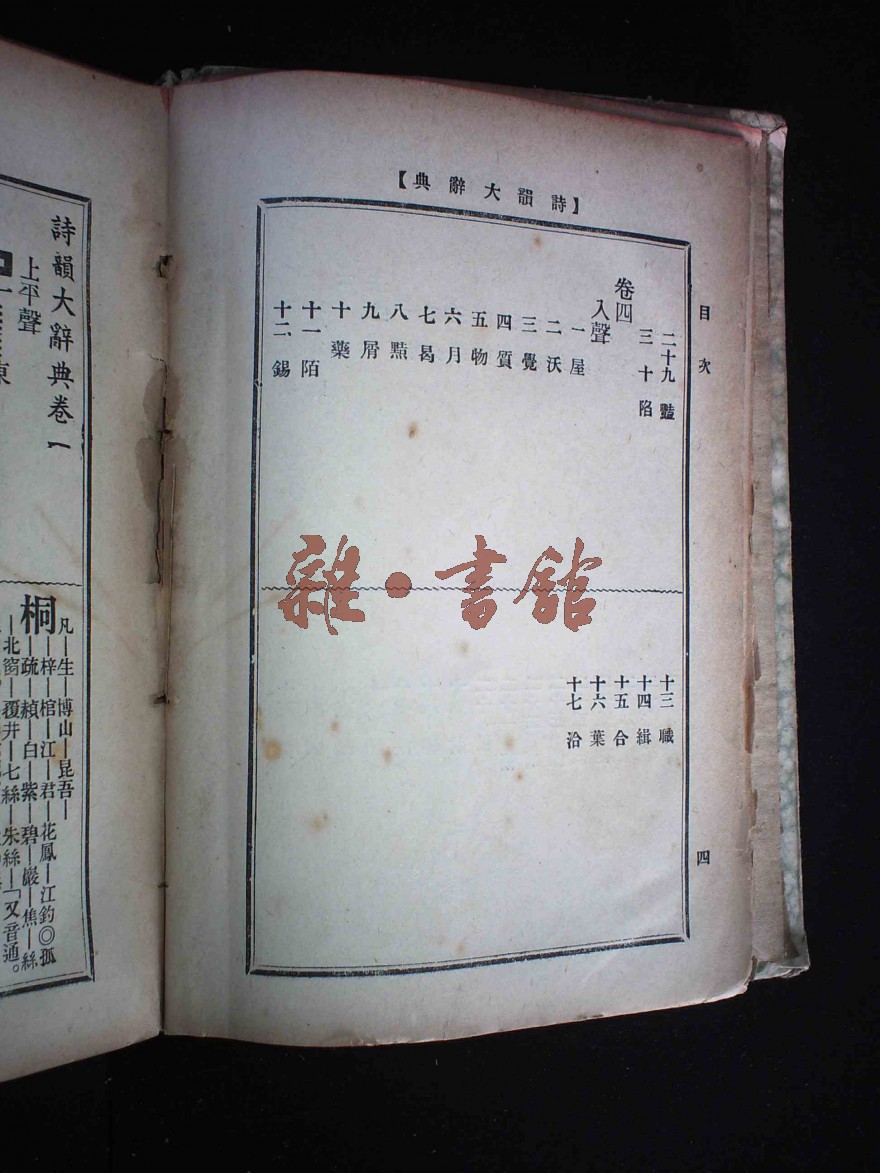 【詩韻大辭典】
目次 四
二十九 豔
三十 陷
卷四
入聲
一 屋
二 沃
三 覺
四 質
五 物
六 月
七 曷
八 黠
九 屑
十 藥
十一 陌
十二 錫
十三 職
十四 緝
十五 合
十六 葉
十七 洽
雜·書館
詩韻大辭典卷一
上平聲
桐
凡—生—博山—昆吾—
—梓—棺—江—君—花鳳—江釣◎孤
—疏—白—紫—碧—巖—焦—絲
—北窗—覆井—七絲—朱絲—「又音通。